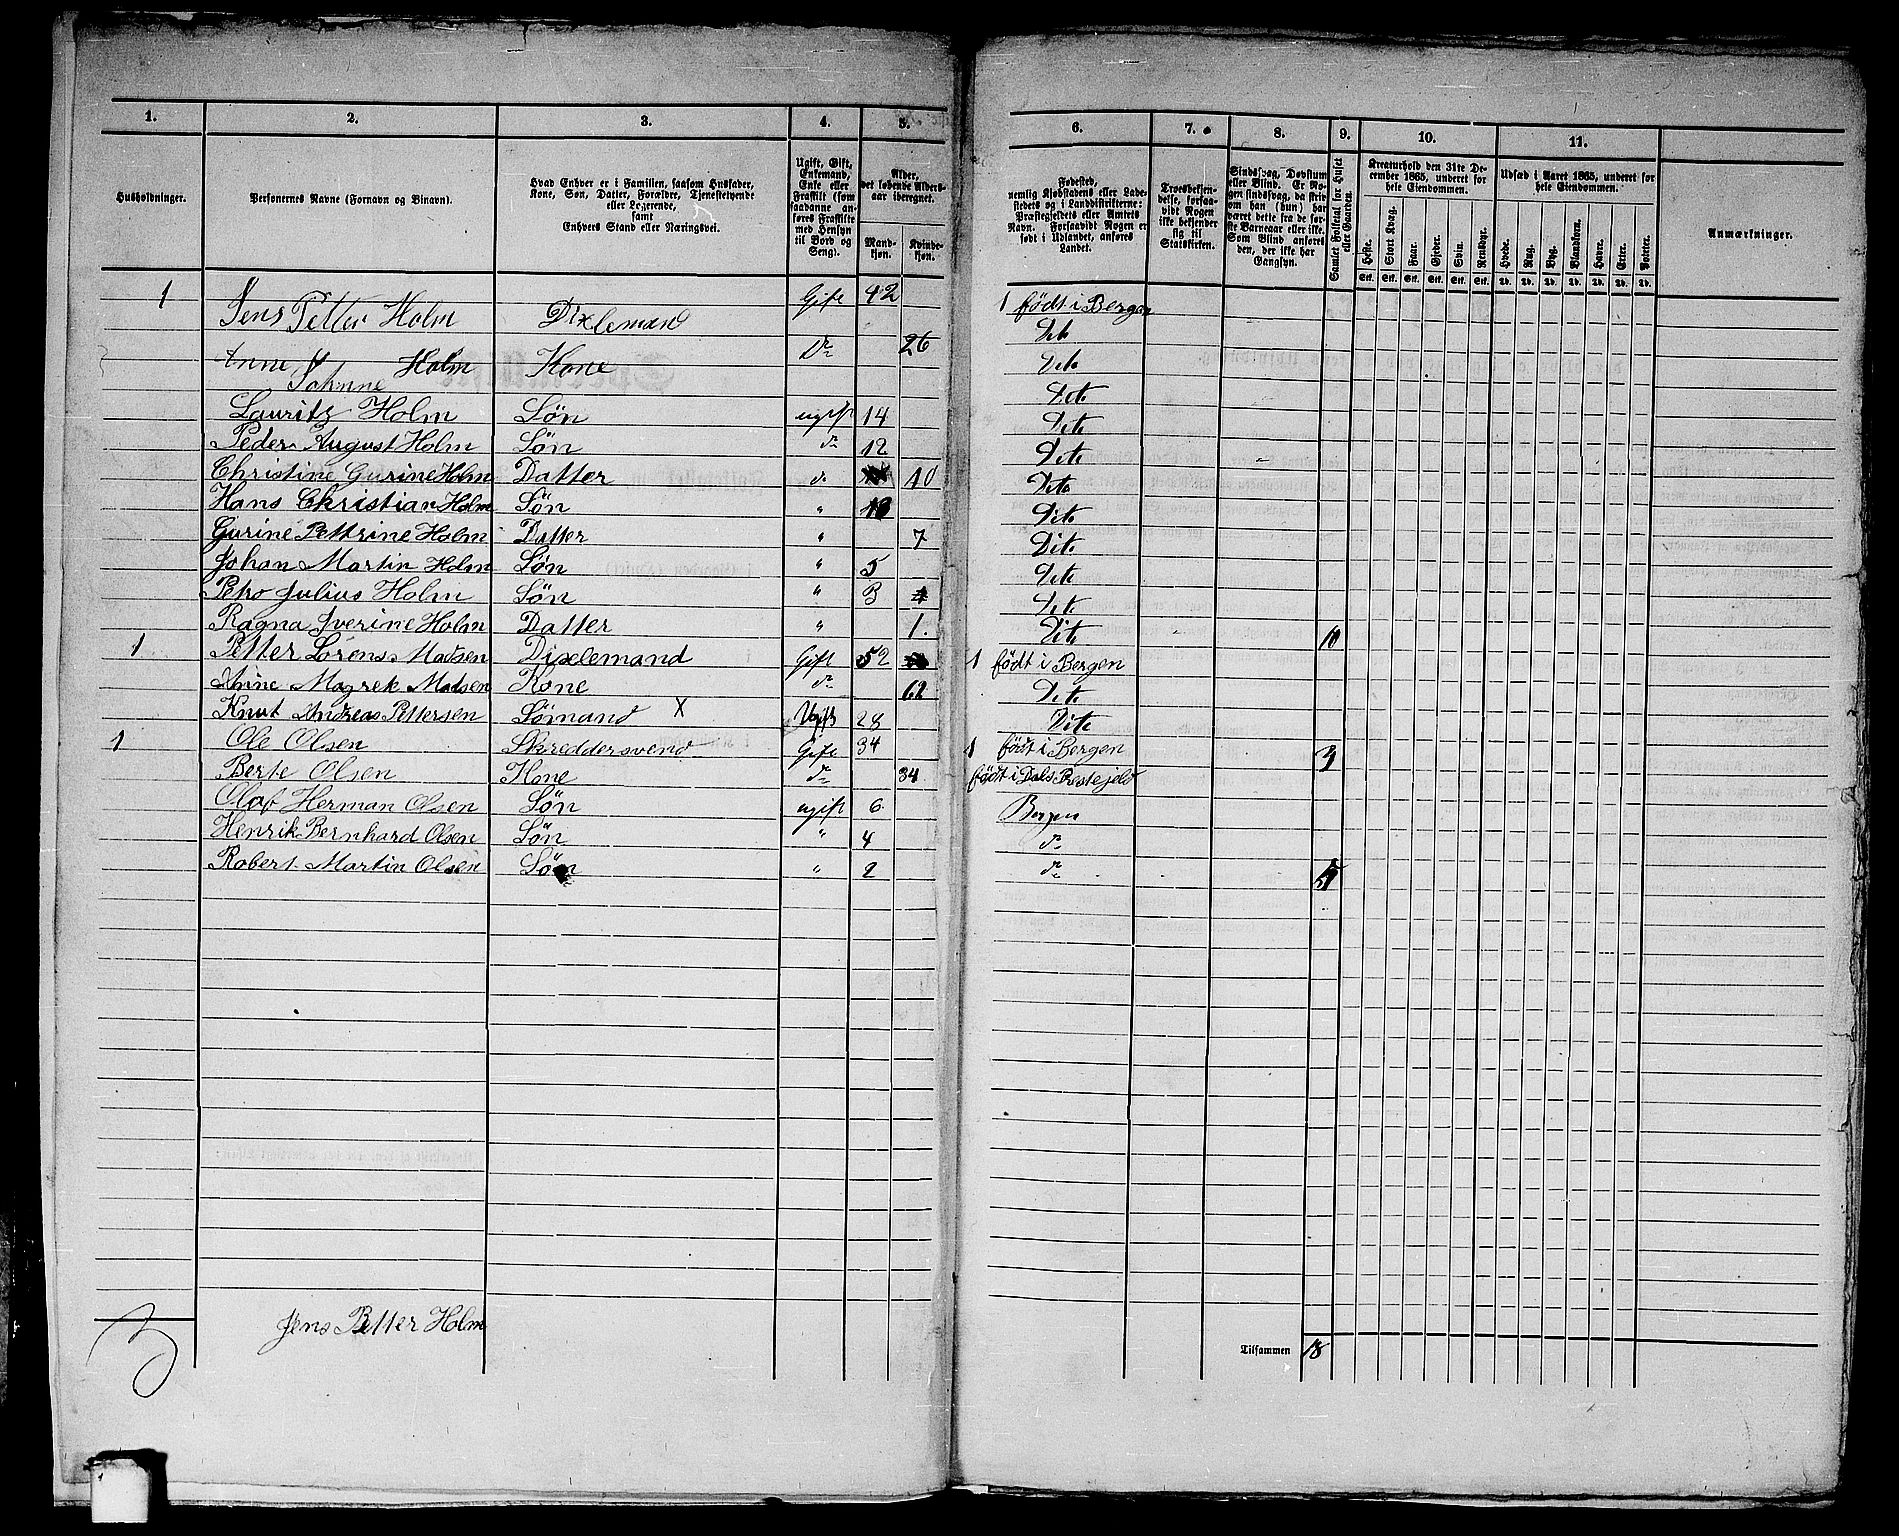 1. 2. 3. 4. 5. 6. 7. 8. 9. 10. 11.
Husholdninger.
Personernes Navne (Fornavn og Binavn).
Hvad Enhver er i Familien, saasom Husfader,
Kone, Søn, Datter, Forældre, Tjenestetyende
eller Logerende,
samt
Enhvers Stand eller Næringsvei.
Ugift, Gift,
Enkemand,
Enke eller
Fraskilt (som
saadanne an-
føres Fraskilte
med Hensyn
til Bord og
Seng).
Alder,
det løbende Alders-
aar iberegnet.
Mand-
kjøn.
Kvinde-
kjøn.
Fødested,
nemlig Kjøbstadens eller Lade-
stedets og i Landdistrikterne:
Præstegjeldets eller Amtets
Navn. Forsaavidt Nogen er
født i Udlandet, anføres
Landet.
Troesbekjen-
delse, forsaa-
vidt Nogen
ikke bekjender
sig til
Statskirken.
Sindssvag, Døvstum
eller Blind. Er No-
gen sindssvag, da skriv
om han (hun) har
været dette fra de før-
ste Barneaar eller ikke.
Som Blind anføres
den, der ikke har
Gangsyn.
Samlet Folketal for Huset
eller Gaarden.
Kreaturhold den 31te De-
cember 1865, underet for
hele Eiendommen.
Heste. Stort Kvæg. Faar. Gjeder. Svin. Rensdyr.
Stk. Stk. Stk. Stk. Stk. Stk.
Udsæd i Aaret 1865, underet for
hele Eiendommen.
Hvede. Rug. Byg. Blandkorn. Havre. Erter. Poteter.
Td. Td. Td. Td. Td. Td. Td.
Anmærkninger.
1 Jens Petter Holm Dixlemand Gift 42 1 født i Bergen
Anne Johnne Holm Kone Do 26 Dito
Lauritz Holm Søn ugift 14 Dito
Peder August Holm Søn do 12 Dito
Christine Gurine Holm Datter do 10 Dito
Hans Christian Holm Søn " Dito
Gurine Pettrine Holm Datter " 7 Dito
Johan Martin Holm Søn " 5 Dito
Petro Julius Holm Søn " 3 Dito
Ragna Iverine Holm Datter " 1. Dito 10
1 Petter Lorens Madsen Dixlemand Gift 52 1 født i Bergen
Anne Magrek Madsen Kone do 62 Dito
Knut Andreas Pettersen Sømand X Ugift 28 Dito
1 Ole Olsen Skreddersvend Gift 34 1 født i Bergen 3
Berte Olsen Kone do 34 født i Dals Prestejeld
Olaf Herman Olsen Søn ugift 6 Bergen
Henrik Bernhard Olsen Søn " 4 do
Robert Martin Olsen Søn " 2 do 5
3 Jens Petter Holm
Tilsammen 18